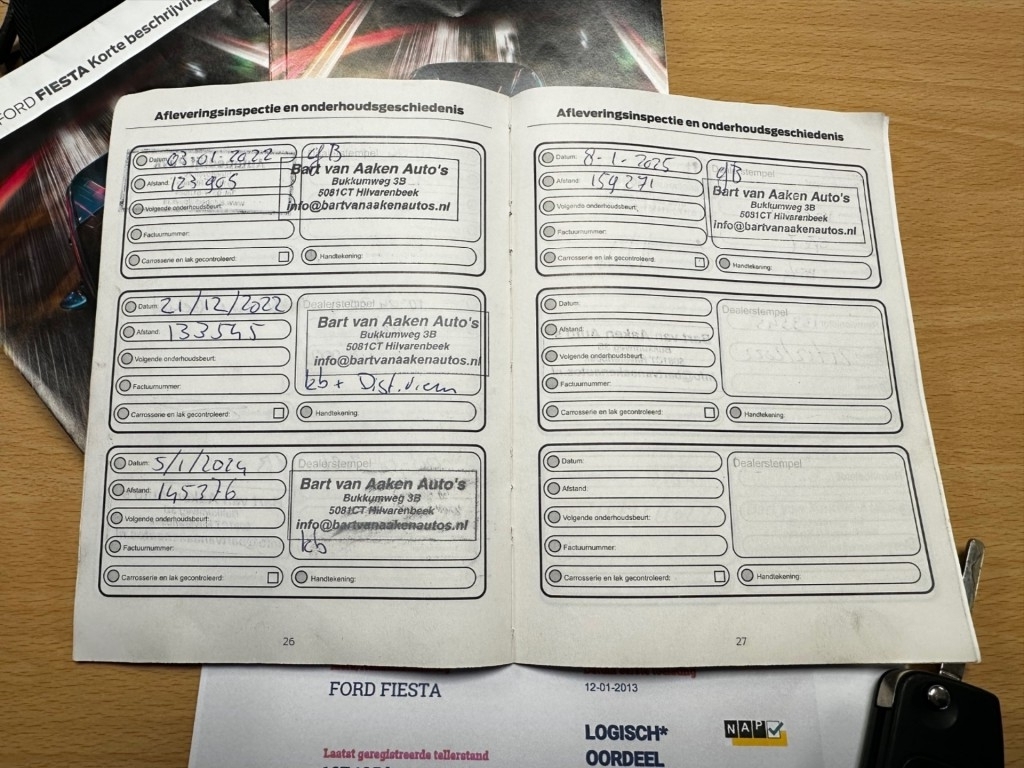 FORD FIESTA Korte beschrijving
Afleveringsinspectie en onderhoudsgeschiedenis
Datum: 03-01-2022
Afstand: 123905
Volgende onderhoudsbeurt:
Factuurnummer:
Carrosserie en lak gecontroleerd:
gB
Bart van Aaken Auto's
Bukkumweg 3B
5081CT Hilvarenbeek
info@bartvanaakenautos.nl
Handtekening:
Datum: 21/12/2022
Afstand: 133545
Volgende onderhoudsbeurt:
Factuurnummer:
Carrosserie en lak gecontroleerd:
Dealerstempel
Bart van Aaken Auto's
Bukkumweg 3B
5081CT Hilvarenbeek
info@bartvanaakenautos.nl
kb + Dist. riem
Handtekening:
Datum: 5/1/2024
Afstand: 145376
Volgende onderhoudsbeurt:
Factuurnummer:
Carrosserie en lak gecontroleerd:
Dealerstempel
Bart van Aaken Auto's
Bukkumweg 3B
5081CT Hilvarenbeek
info@bartvanaakenautos.nl
kb
Handtekening:
26
Afleveringsinspectie en onderhoudsgeschiedenis
Datum: 8-1-2025
Afstand: 159271
Volgende onderhoudsbeurt:
Factuurnummer:
Carrosserie en lak gecontroleerd:
gB
Bart van Aaken Auto's
Bukkumweg 3B
5081CT Hilvarenbeek
info@bartvanaakenautos.nl
Handtekening:
Datum:
Afstand:
Volgende onderhoudsbeurt:
Factuurnummer:
Carrosserie en lak gecontroleerd:
Dealerstempel
Handtekening:
Datum:
Afstand:
Volgende onderhoudsbeurt:
Factuurnummer:
Carrosserie en lak gecontroleerd:
Dealerstempel
Handtekening:
27
FORD FIESTA
12-01-2013
Laatst geregistreerde tellerstand
LOGISCH*
OORDEEL
NAP